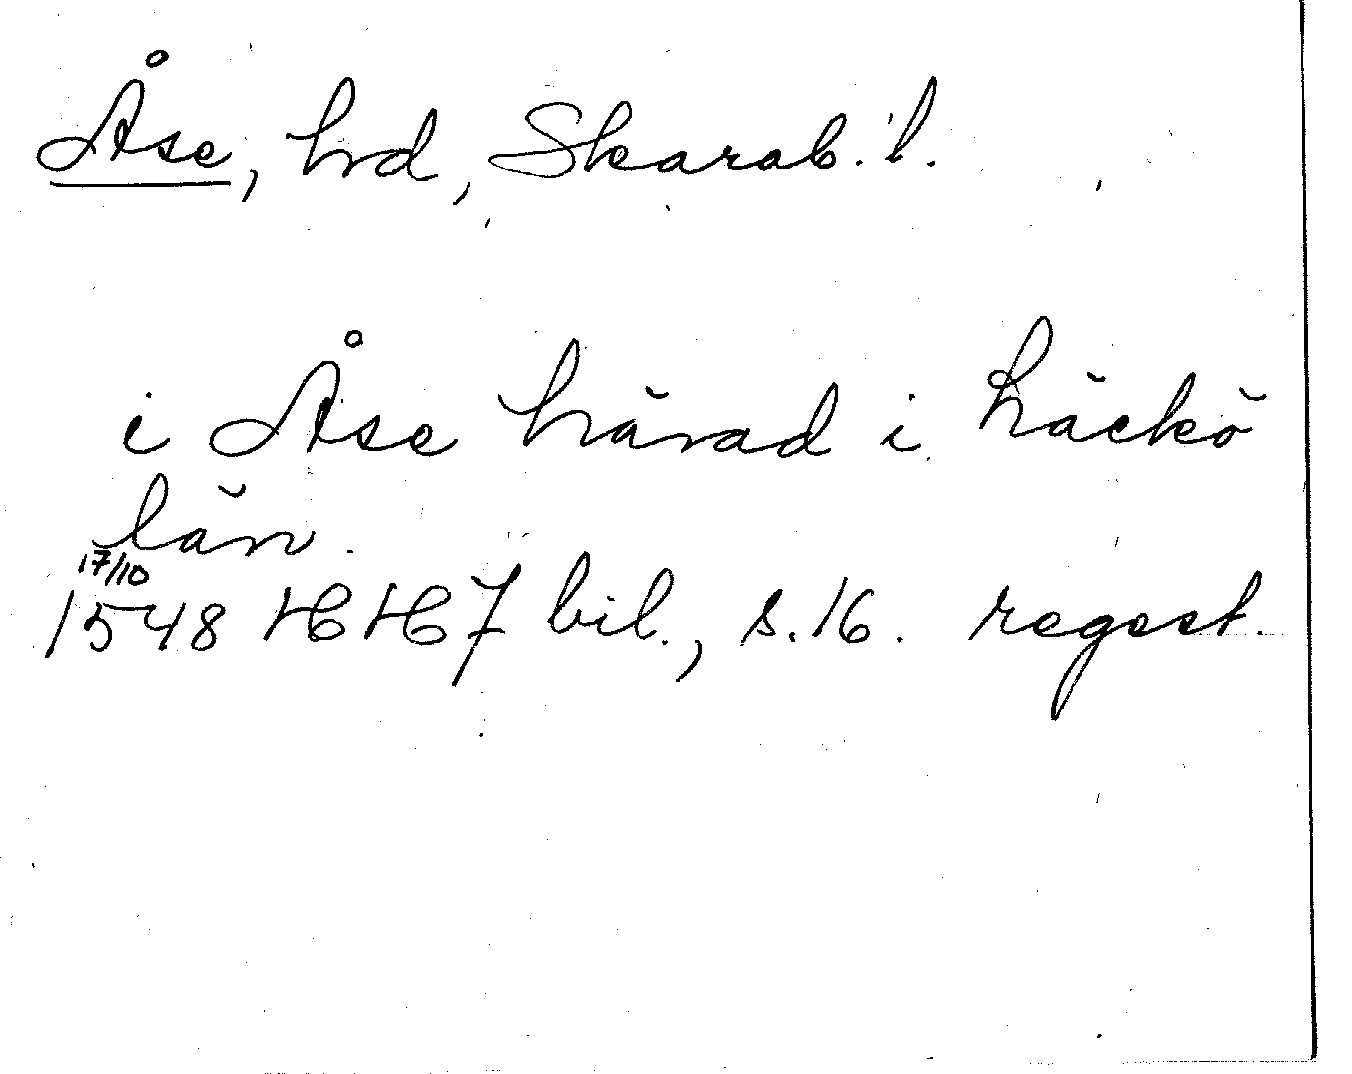 Åse, hrd, Skarab. l.
i Åse härad i Läckö
län.
17/10
1548 HH 7 bil., s. 16. regest.